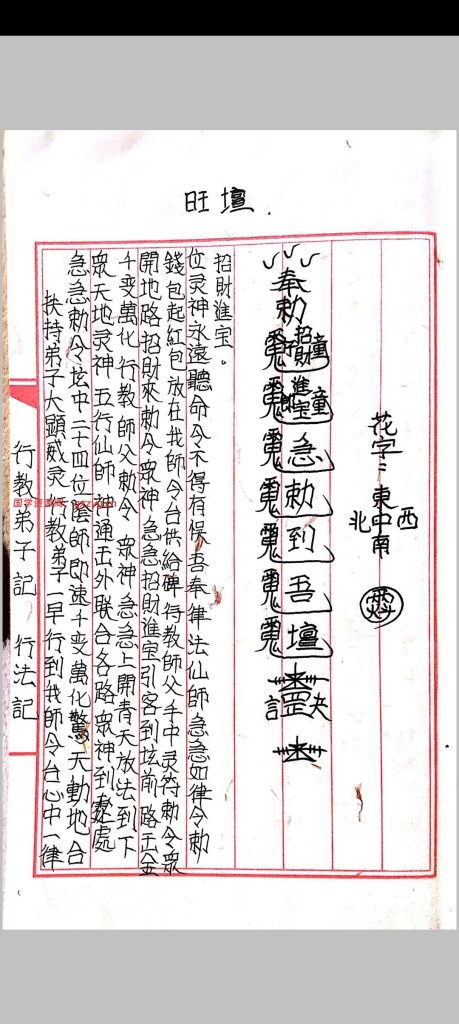 旺壇.
行教弟子記 行法記
扶持弟子大顯威灵 教弟子一早行到我師令台心中一律
急急勅令坛中二十四位陰師即速千变萬化驚天動地合
眾天地灵神五行仙師神通玉外联合各路眾神到處
千变萬化行教師父勅令眾神急急上開青天放法到下
開地路招財來勅令眾神急急招財進宝引客到坛前路玉金
錢包起紅包放在我師令台供給碑侍教師父手中灵符勅令眾
位灵神永遠聽命令不得有保吾奉律法仙師急急如律令勅
招財進宝。
奉勅
招財童子
進宝童
急
勅
到
吾
壇
罡訣
花字：東中南
北 西